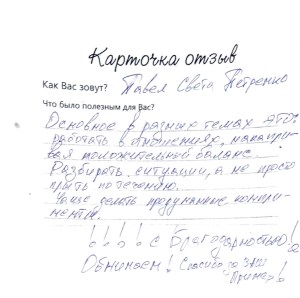 Карточка отзыв
Как Вас зовут? Павел Света Петренко
Что было полезным для Вас?
Основное в разных темах это:
работать в отношениях, накапли-
вая положительный баланс.
Разбирать ситуации, а не просто
плыть по течению.
Чаще делать продуманные компли-
менты.
!!!! с Благодарностью!
Обнимаем! Спасибо за Ваш
Пример!